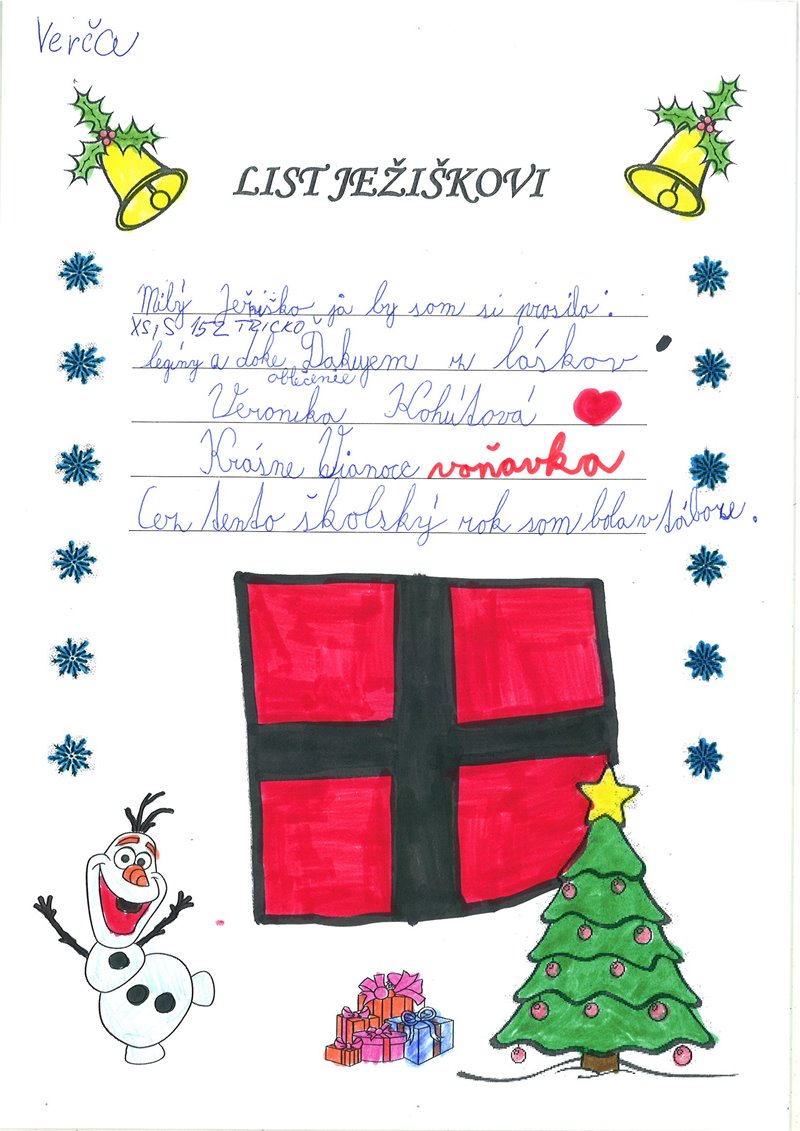 Verča
LIST JEŽIŠKOVI
Milý Ježiško ja by som si prosila:
XS, S 152 TRICKO
legíny a doke Ďakujem z láskov
oblečenie
Veronika Kohútová
Krásne Vianoce voňavka
Cez tento školský rok som bola v táboze.